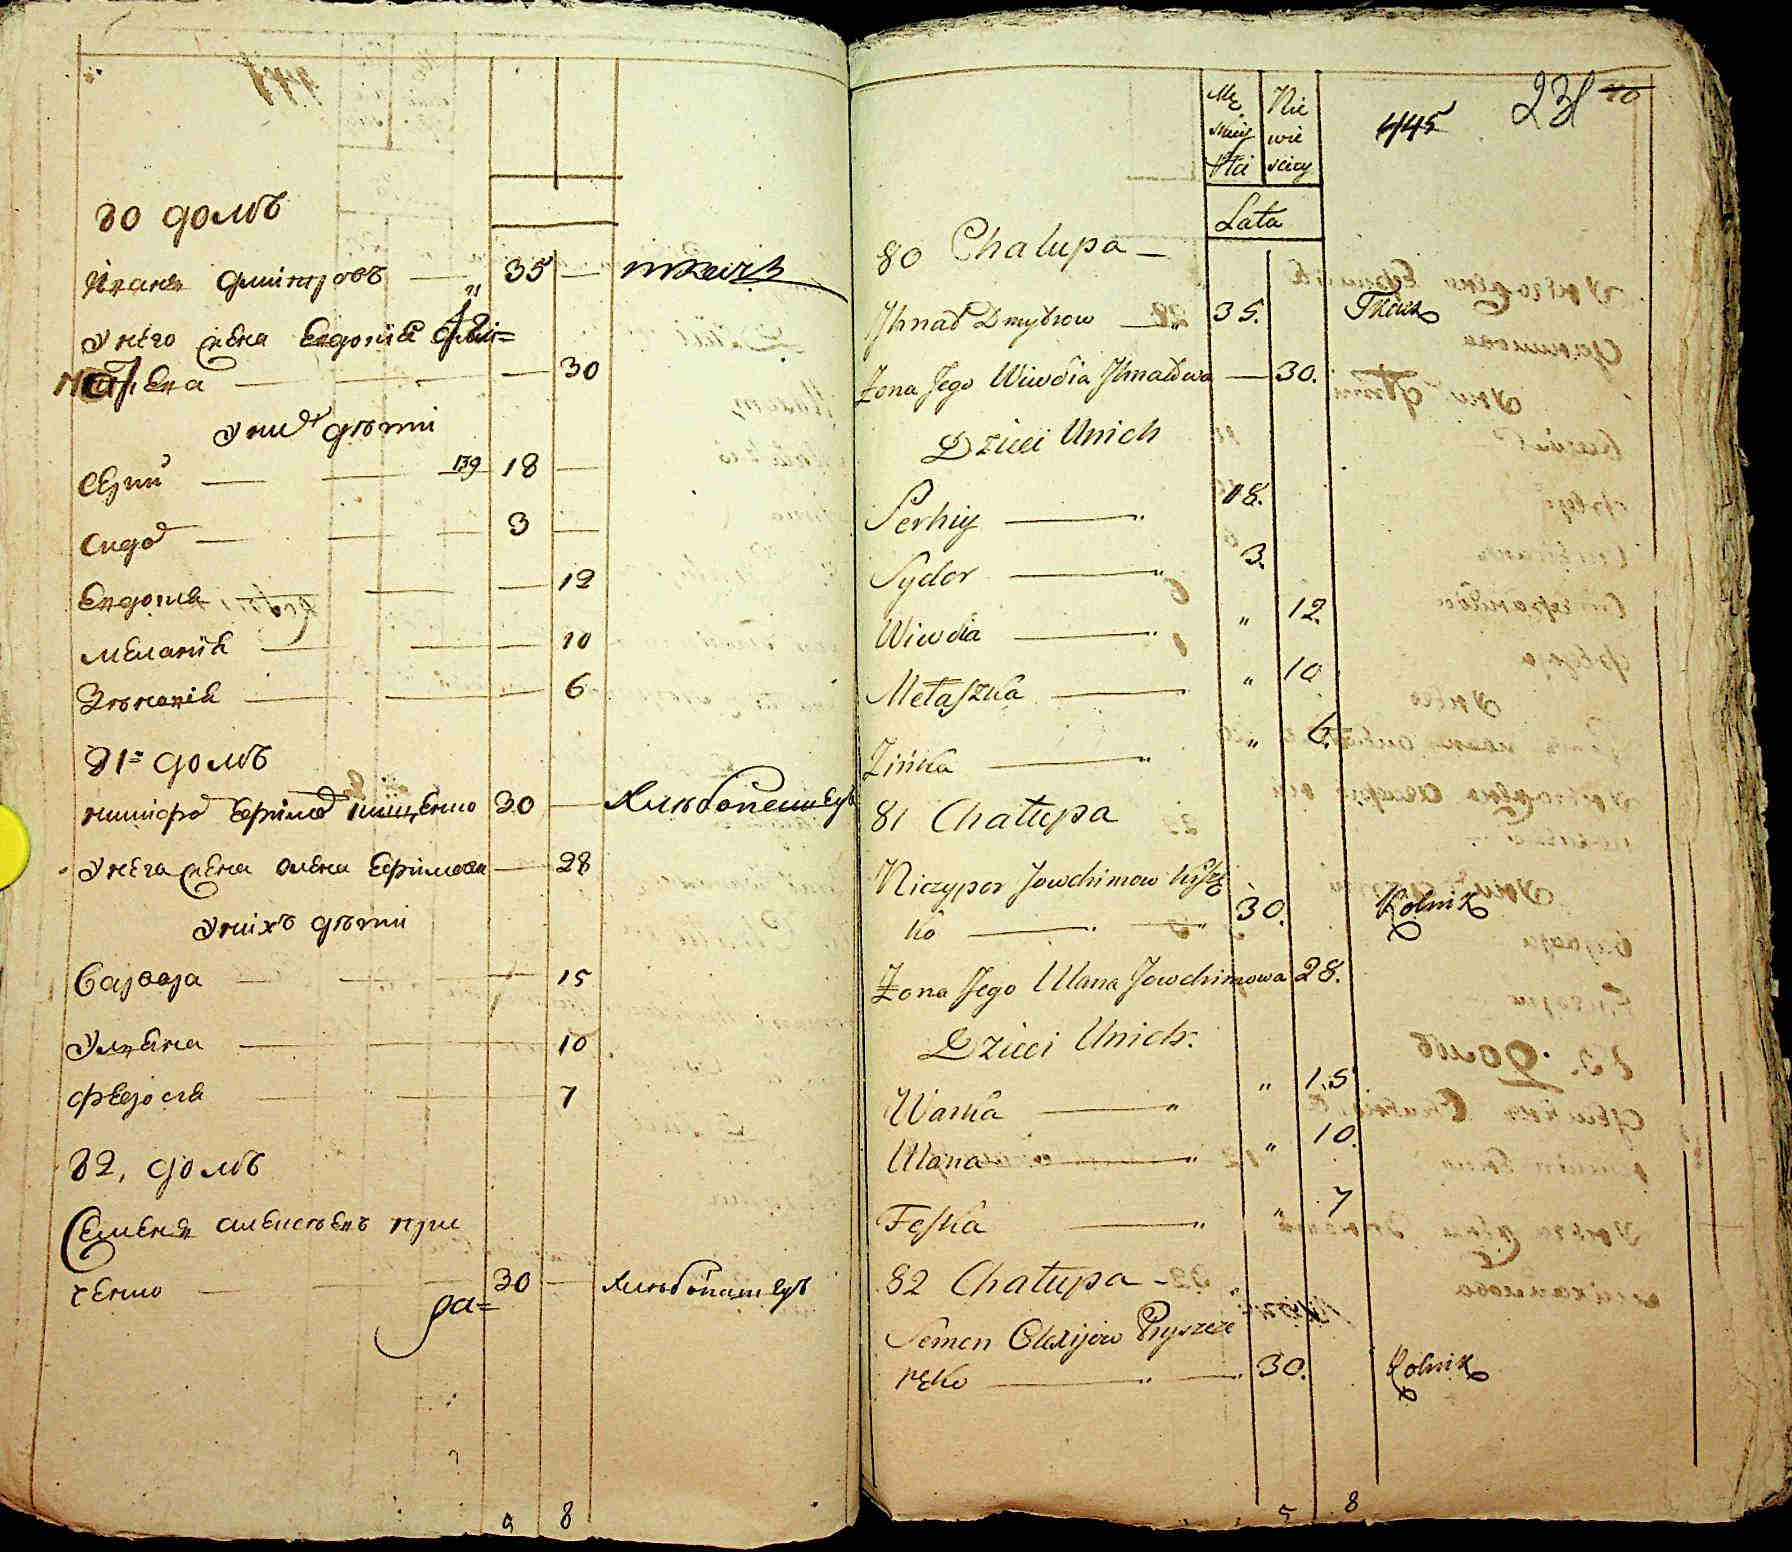 80 домъ
35 — ткачъ
У него жена Евдокія
— 30
У них дѣти
Сергій — 139 18 —
Сидор — 3 —
Евдокія — 12
Меланія — 10
Зѣновія — 6
81 = домъ
Ничипор Ефимов 30 — Хлѣбопашецъ
У нега жена Олена Ефимова — 28
У нихъ дѣти
Варвара — 15
Улияна — 10
Феврося — 7
82, домъ
Семенъ Алексѣевъ При
ченко — 30 — Хлѣбопашецъ
ра=
5 8
231
445
Mę Nie
wie
scizy
Lata
80 Chalupa —
Ihnat Dmytrow — 35. Tkacz
Żona Jego Wiwdia Ihnatowa — 30.
Dzieci Unich
Serhiy — 18.
Sydor — 3.
Wiwdia — " 12.
Metaszka — " 10
Zińka — " 6.
81 Chałupa
Niczypor Jowchimow Kisz
ko — 30. Rolnik
Żona Jego Ulana Jowchimowa 28.
Dzieci Unich:
Warka — " 15
Ulana — " 10.
Feska — " 7
82 Chałupa —
Semen Olexijew Pryszcze
pęko — 30. Rolnik
5 8